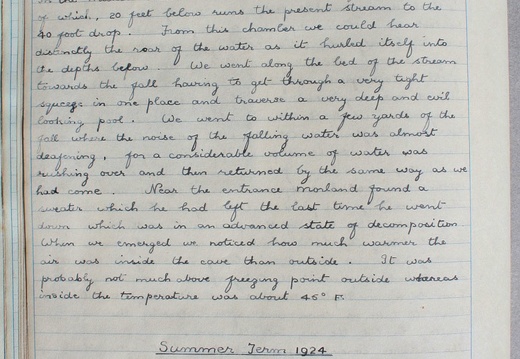 of which, 20 feet below runs the present stream to the
40 foot drop. From this chamber we could hear
distinctly the roar of the water as it hurled itself into
the depths below. We went along the bed of the stream
towards the fall having to get through a very tight
squeeze in one place and traverse a very deep and evil
looking pool. We went to within a few yards of the
fall where the noise of the falling water was almost
deafening, for a considerable volume of water was
rushing over and then returned by the same way as we
had come. Near the entrance Morland found a
sweater which he had left the last time he went
down which was in an advanced state of decomposition
When we emerged we noticed how much warmer the
air was inside the cave than outside. It was
probably not much above freezing point outside whereas
inside the temperature was about 45° F.
Summer Term 1924